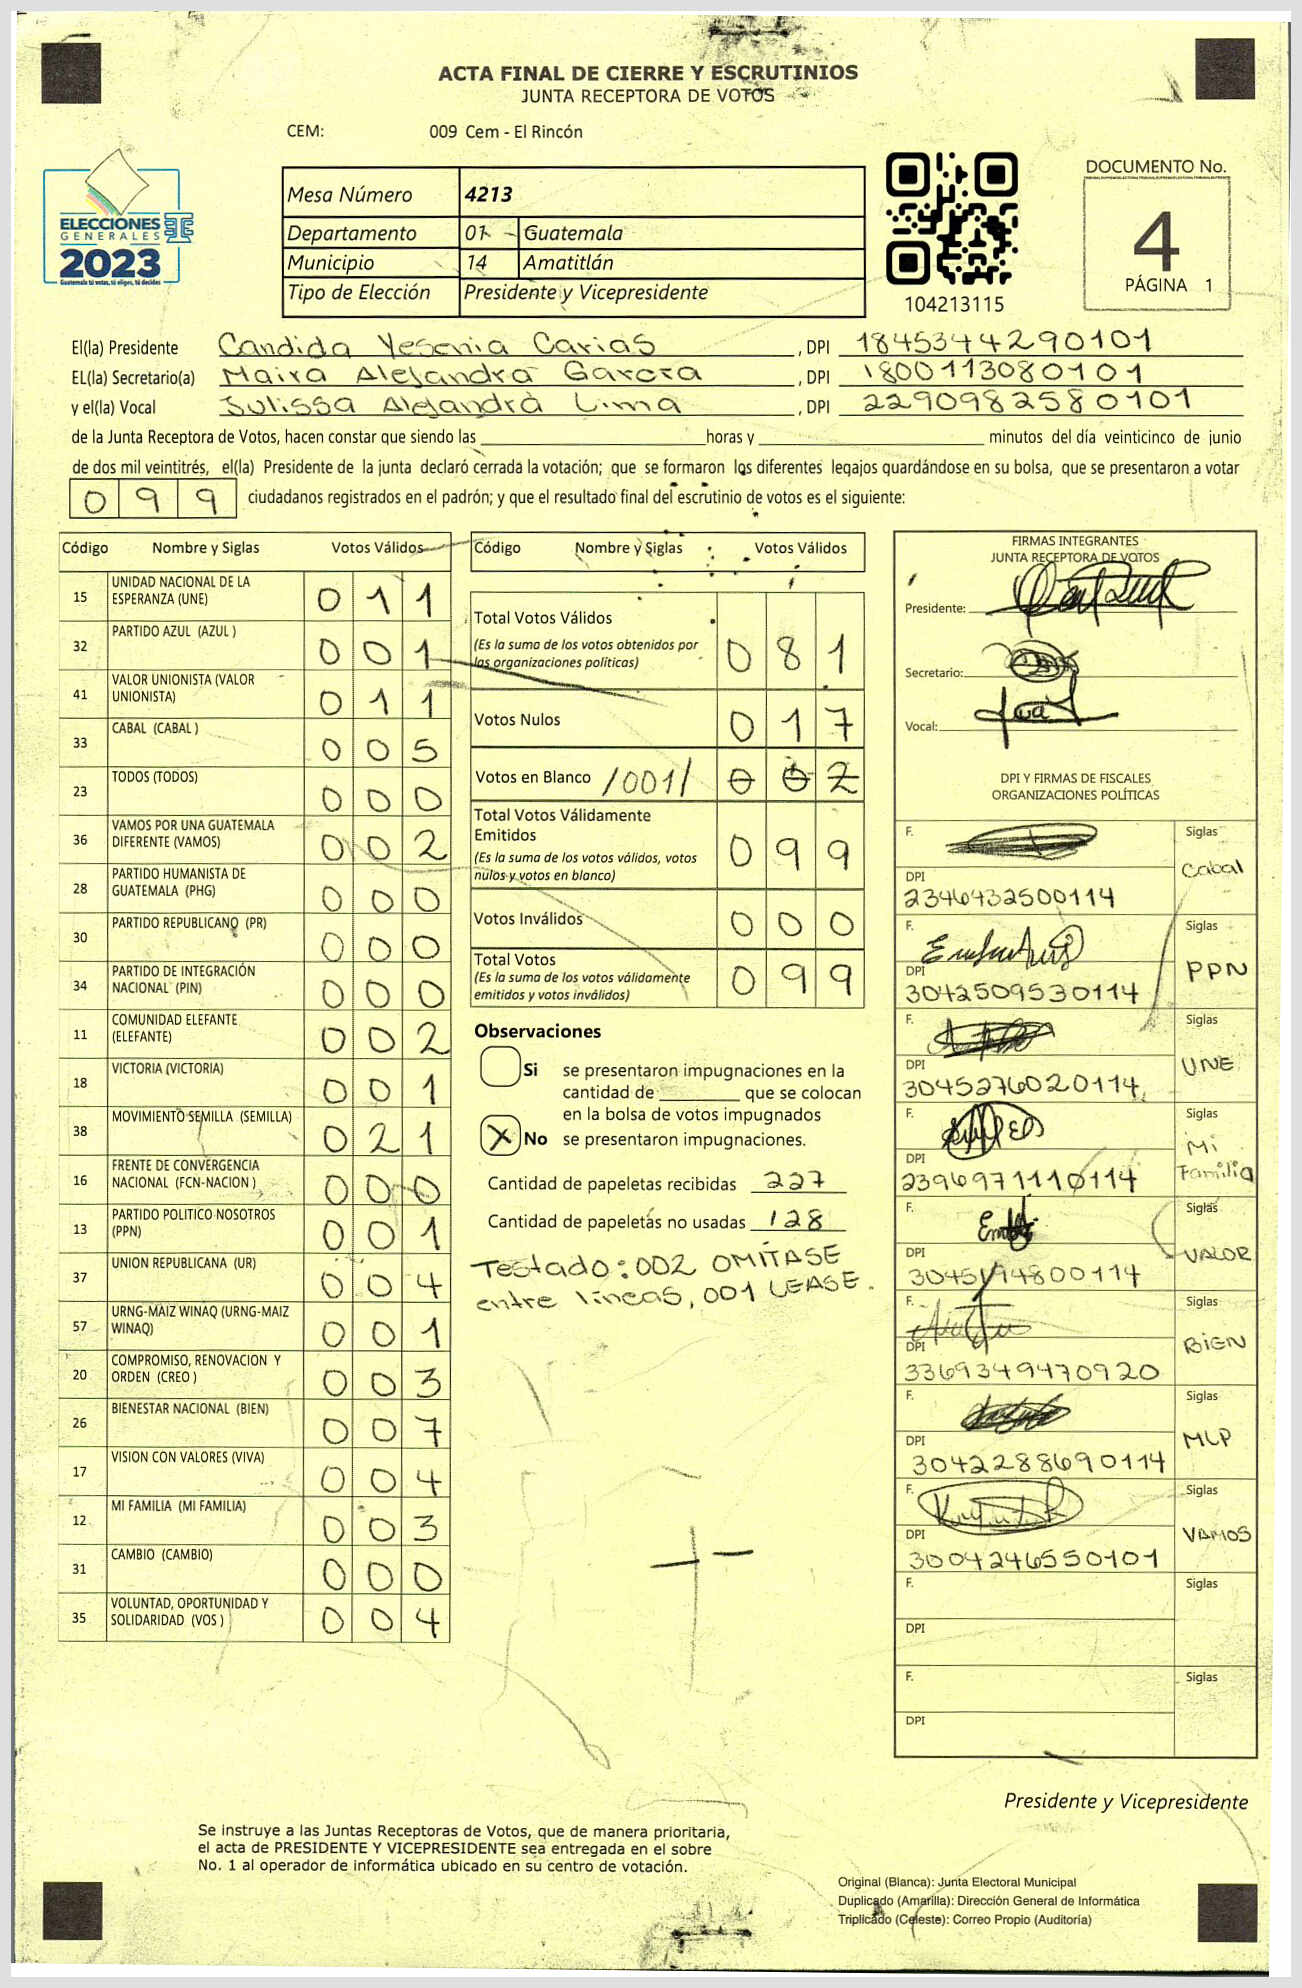 ACTA FINAL DE CIERRE Y ESCRUTINIOS
JUNTA RECEPTORA DE VOTOS
CEM: 009 Cem - El Rincón
ELECCIONES
GENERALES
2023
Guatemala tú votas, tú eliges, tú decides
Mesa Número 4213
Departamento 01 Guatemala
Municipio 14 Amatitlán
Tipo de Elección Presidente y Vicepresidente
104213115
DOCUMENTO No.
4
PÁGINA 1
El(la) Presidente Candida Yesenia Carias , DPI 1845344290101
EL(la) Secretario(a) Maira Alejandra Garcia , DPI 1800113080101
y el(la) Vocal Julissa Alejandra Lima , DPI 2290982580101
de la Junta Receptora de Votos, hacen constar que siendo las horas y minutos del día veinticinco de junio
de dos mil veintitrés, el(la) Presidente de la junta declaró cerrada la votación; que se formaron los diferentes legajos guardándose en su bolsa, que se presentaron a votar
099 ciudadanos registrados en el padrón; y que el resultado final del escrutinio de votos es el siguiente:
Código Nombre y Siglas Votos Válidos
15 UNIDAD NACIONAL DE LA
ESPERANZA (UNE) 011
32 PARTIDO AZUL (AZUL ) 001
41 VALOR UNIONISTA (VALOR
UNIONISTA) 011
33 CABAL (CABAL ) 005
23 TODOS (TODOS) 000
36 VAMOS POR UNA GUATEMALA
DIFERENTE (VAMOS) 002
28 PARTIDO HUMANISTA DE
GUATEMALA (PHG) 000
30 PARTIDO REPUBLICANO (PR) 000
34 PARTIDO DE INTEGRACIÓN
NACIONAL (PIN) 000
11 COMUNIDAD ELEFANTE
(ELEFANTE) 002
18 VICTORIA (VICTORIA) 001
38 MOVIMIENTO SEMILLA (SEMILLA) 021
16 FRENTE DE CONVERGENCIA
NACIONAL (FCN-NACION ) 000
13 PARTIDO POLITICO NOSOTROS
(PPN) 001
37 UNION REPUBLICANA (UR) 004
57 URNG-MAIZ WINAQ (URNG-MAIZ
WINAQ) 001
20 COMPROMISO, RENOVACION Y
ORDEN (CREO ) 003
26 BIENESTAR NACIONAL (BIEN) 007
17 VISION CON VALORES (VIVA) 004
12 MI FAMILIA (MI FAMILIA) 003
31 CAMBIO (CAMBIO) 000
35 VOLUNTAD, OPORTUNIDAD Y
SOLIDARIDAD (VOS ) 004
Código Nombre y Siglas Votos Válidos
Total Votos Válidos 081
(Es la suma de los votos obtenidos por
las organizaciones políticas)
Votos Nulos 017
Votos en Blanco /001/ 002
Total Votos Válidamente
Emitidos 099
(Es la suma de los votos válidos, votos
nulos y votos en blanco)
Votos Inválidos 000
Total Votos 099
(Es la suma de los votos válidamente
emitidos y votos inválidos)
Observaciones
Si se presentaron impugnaciones en la
cantidad de que se colocan
en la bolsa de votos impugnados
X No se presentaron impugnaciones.
Cantidad de papeletas recibidas 227
Cantidad de papeletas no usadas 128
Testado: 002 OMÍTASE
entre líneas, 001 LEASE.
FIRMAS INTEGRANTES
JUNTA RECEPTORA DE VOTOS
Presidente:
Secretario:
Vocal:
DPI Y FIRMAS DE FISCALES
ORGANIZACIONES POLÍTICAS
F. Siglas
Cabal
DPI
2346432500114
F. Siglas
PPN
DPI
3042509530114
F. Siglas
UNE
DPI
3045276020114
F. Siglas
Mi
Familia
DPI
2396971110114
F. Siglas
VALOR
DPI
3045194800114
F. Siglas
BIEN
DPI
3369349470920
F. Siglas
MLP
DPI
3042288690114
F. Siglas
VAMOS
DPI
3004246550101
F. Siglas
DPI
F. Siglas
DPI
Presidente y Vicepresidente
Se instruye a las Juntas Receptoras de Votos, que de manera prioritaria,
el acta de PRESIDENTE Y VICEPRESIDENTE sea entregada en el sobre
No. 1 al operador de informática ubicado en su centro de votación.
Original (Blanca): Junta Electoral Municipal
Duplicado (Amarilla): Dirección General de Informática
Triplicado (Celeste): Correo Propio (Auditoría)